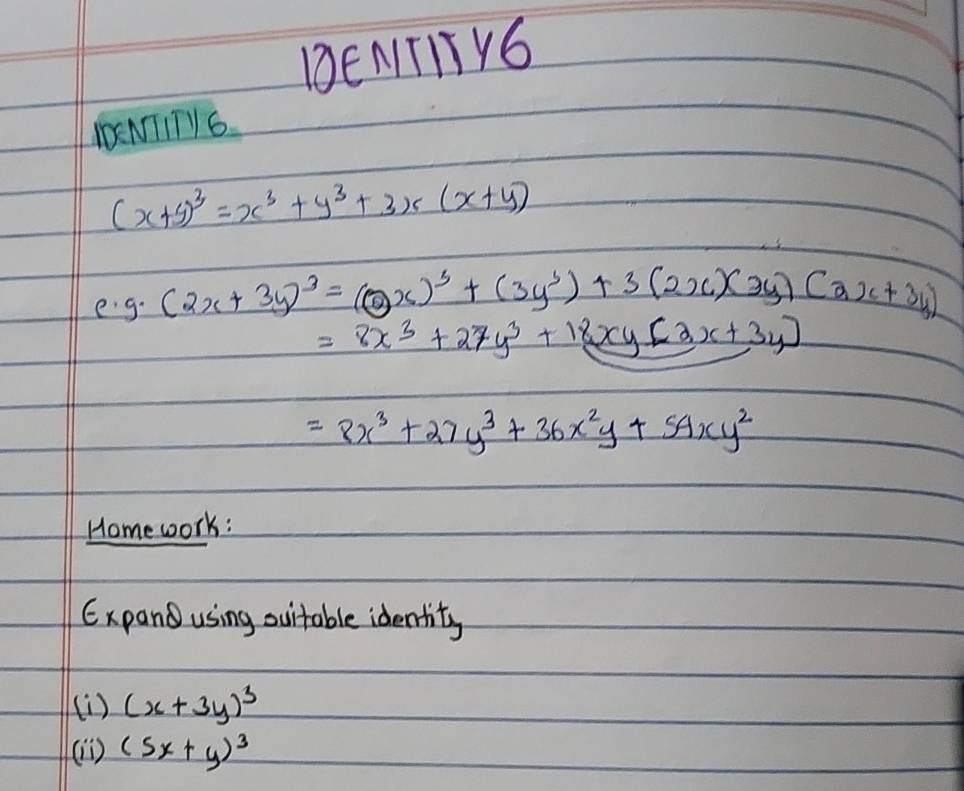 IDENTITY 6
IDENTITY 6
(x+y)³ = x³ + y³ + 3x (x+y)
e.g. (2x + 3y)³ = (2x)³ + (3y³) + 3 (2x)(3y) (2x + 3y)
= 8x³ + 27y³ + 18xy [2x + 3y]
= 8x³ + 27y³ + 36x²y + 54xy²
Homework:
Expand using suitable identity
(i) (x + 3y)³
(ii) (5x + y)³